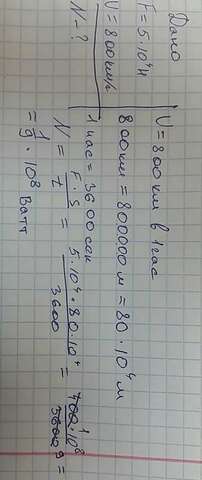 Дано
F = 5·10⁴Н
V = 800км/ч
N - ?
V = 800 км в 1 час
800км = 800000 м = 80·10⁴ м
1 час = 3600 сек
N = F·S / t = 5·10⁴·80·10⁴ / 3600 = 400·10⁸ / 3600 =
= 1/9 · 10⁸ Ватт